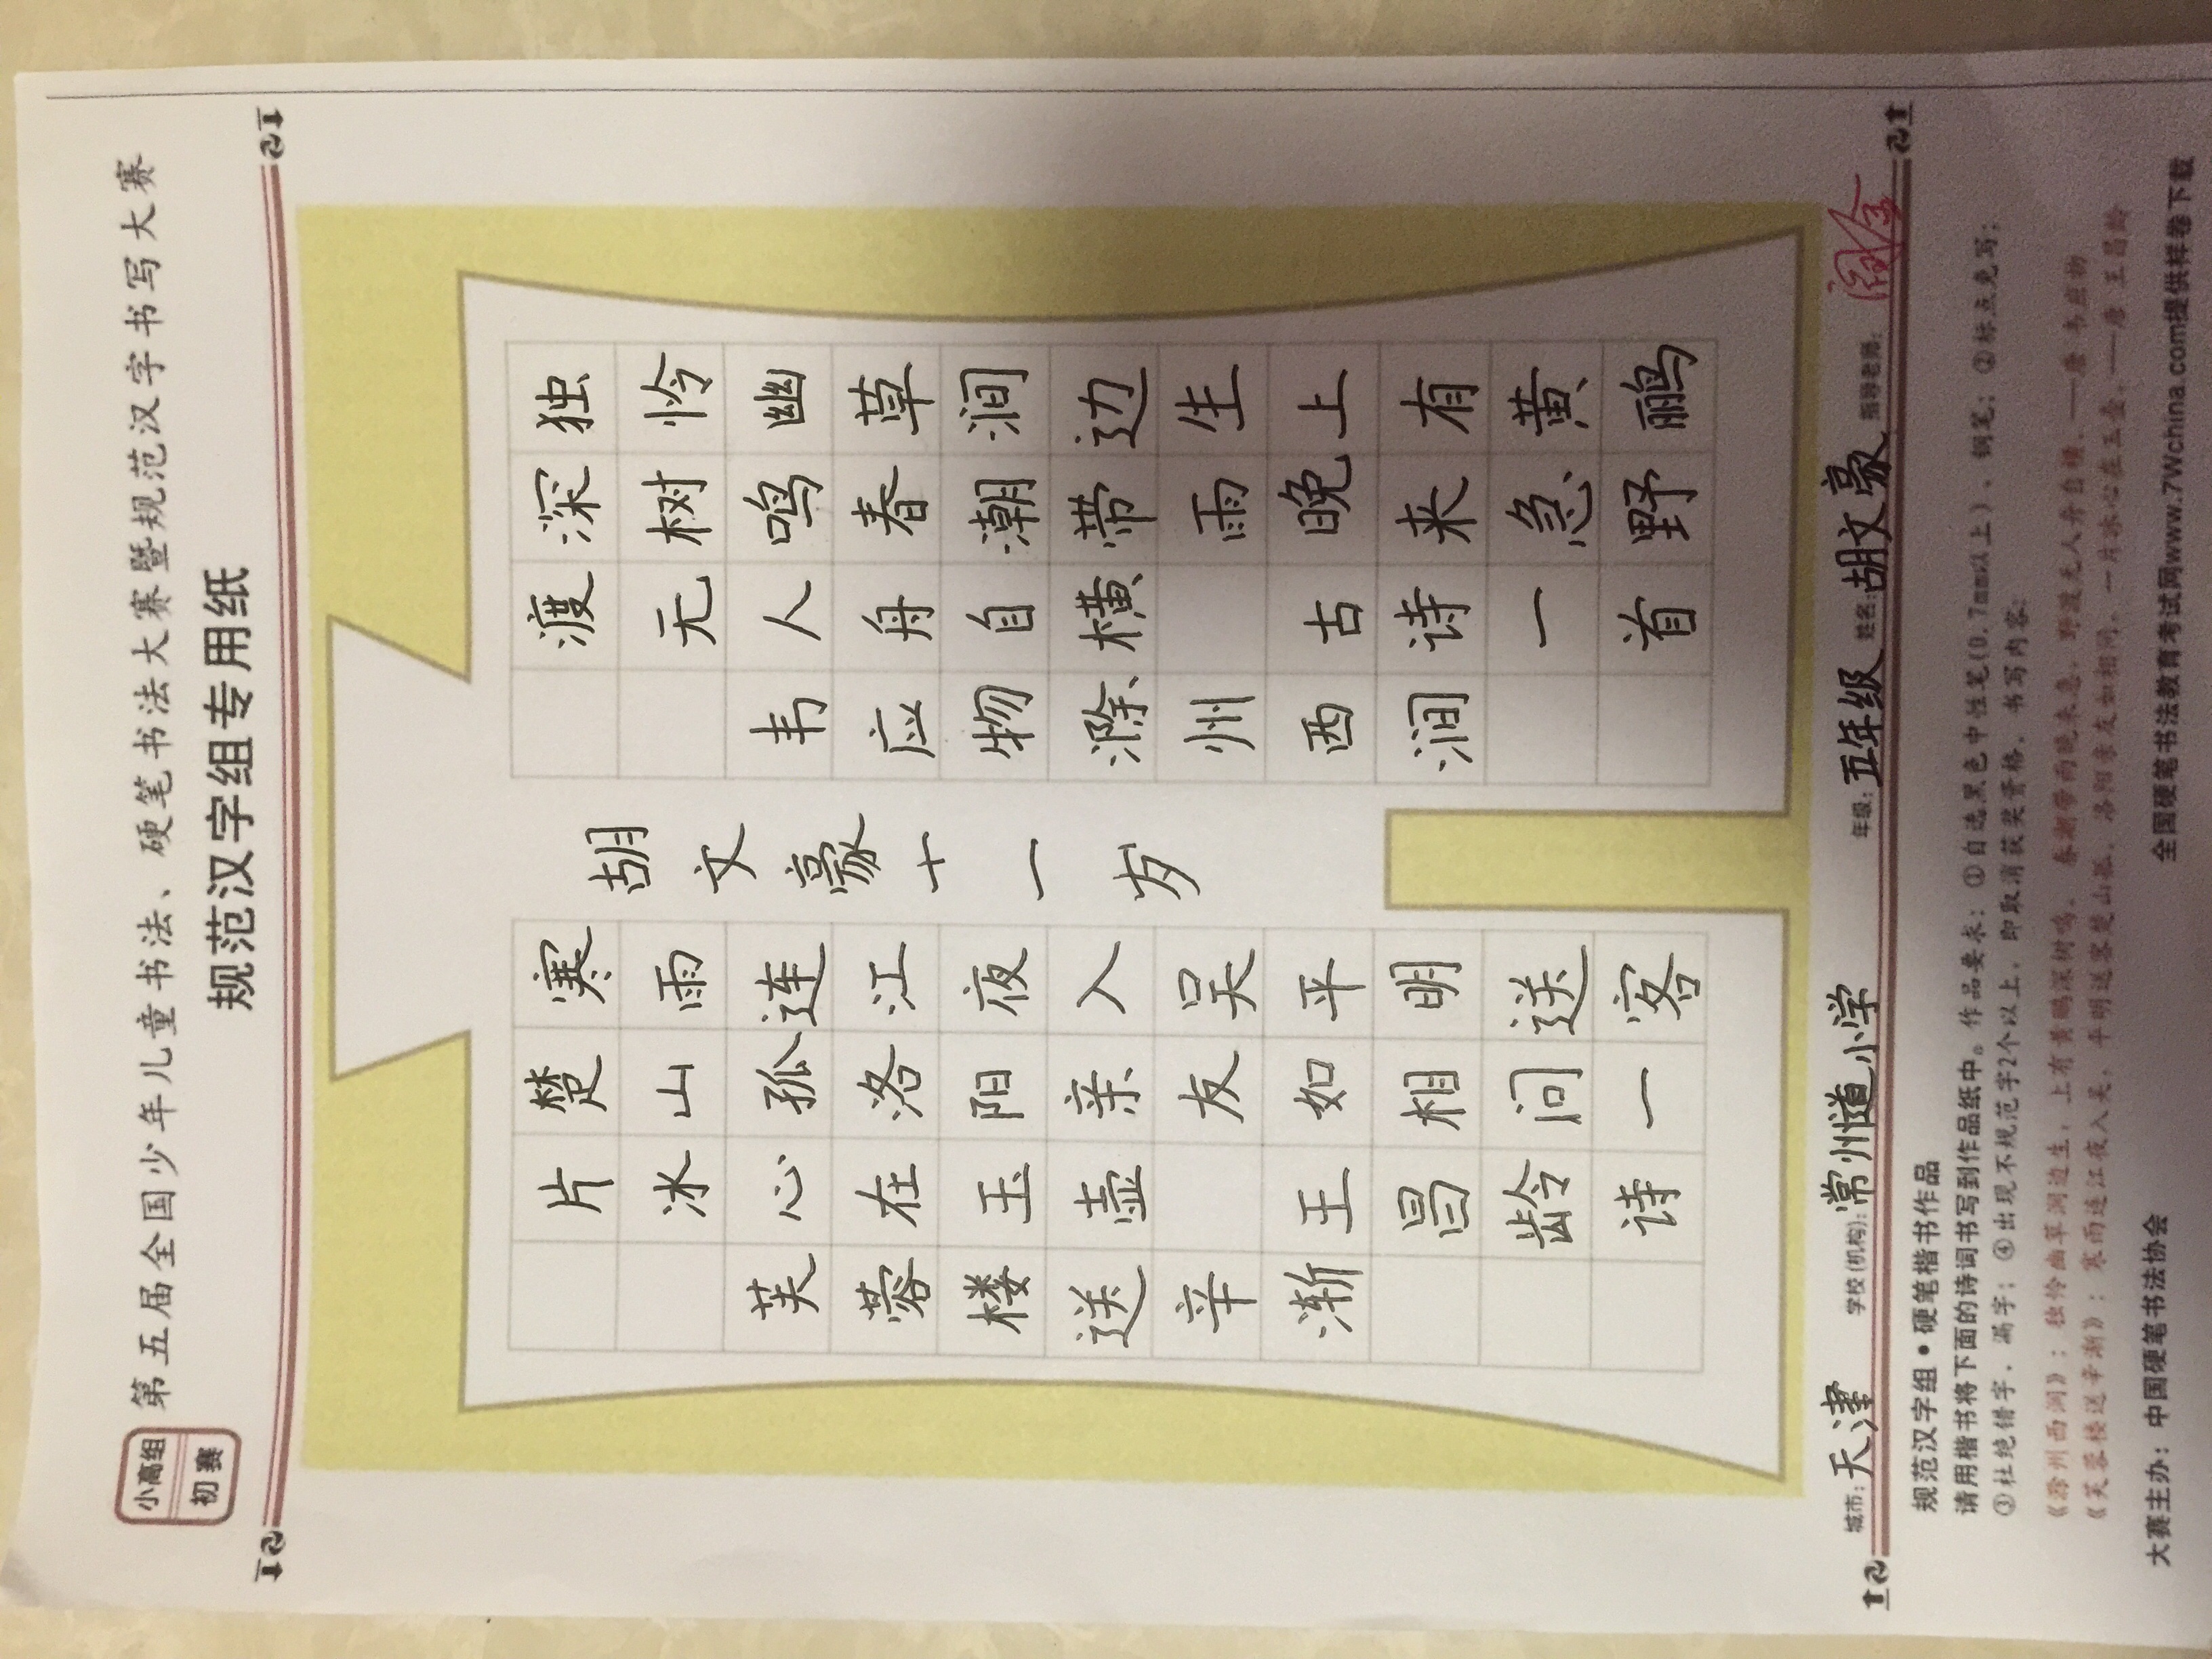 小高组
初赛
第五届全国少年儿童书法、硬笔书法大赛暨规范汉字书写大赛
规范汉字组专用纸
独怜幽草涧边生上有黄鹂
深树鸣春潮带雨晚来急野
渡无人舟自横 古诗一首
韦应物滁州西涧
胡文豪十一岁
寒雨连江夜入吴平明送客
楚山孤洛阳亲友如相问一
片冰心在玉壶 王昌龄诗
芙蓉楼送辛渐
城市：天津 学校(机构)：常州道小学 年级：五年级 姓名：胡文豪 指导老师：
规范汉字组·硬笔楷书作品
请用楷书将下面的诗词书写到作品纸中。作品要求：①自选黑色中性笔(0.7mm以上)、钢笔；②标点免写；
③杜绝错字、漏字；④出现不规范字2个以上，即取消获奖资格。书写内容：
《滁州西涧》：独怜幽草涧边生，上有黄鹂深树鸣。春潮带雨晚来急，野渡无人舟自横。——唐 韦应物
《芙蓉楼送辛渐》：寒雨连江夜入吴，平明送客楚山孤。洛阳亲友如相问，一片冰心在玉壶。——唐 王昌龄
大赛主办：中国硬笔书法协会 全国硬笔书法教育考试网www.7Wchina.com提供样卷下载